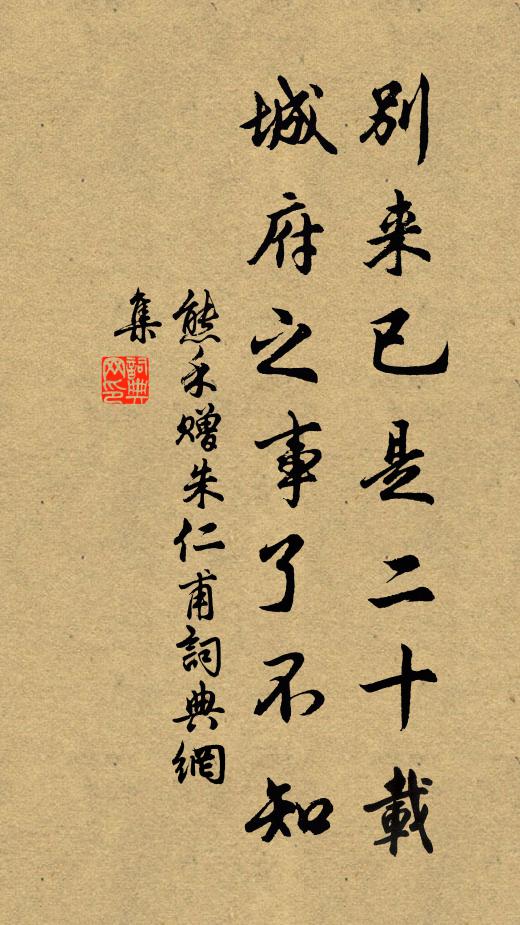 別来已是二十載
城府之事了不知
熊禾贈朱仁甫詞典網
集
詞典
网印